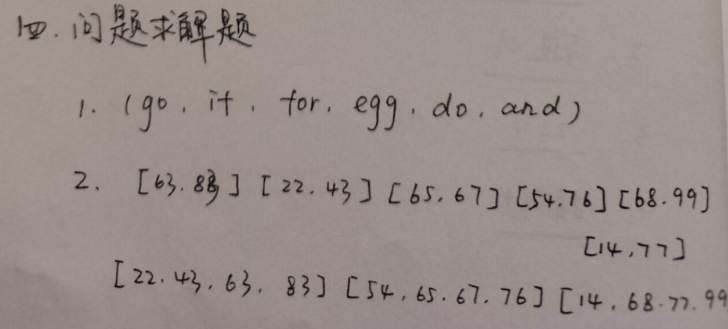 四.问题求解题
1. (go, it, for, egg, do, and)
2. [63, 83] [22, 43] [65, 67] [54,76] [68,99]
[14,77]
[22, 43, 63, 83] [54, 65, 67, 76] [14, 68, 77, 99